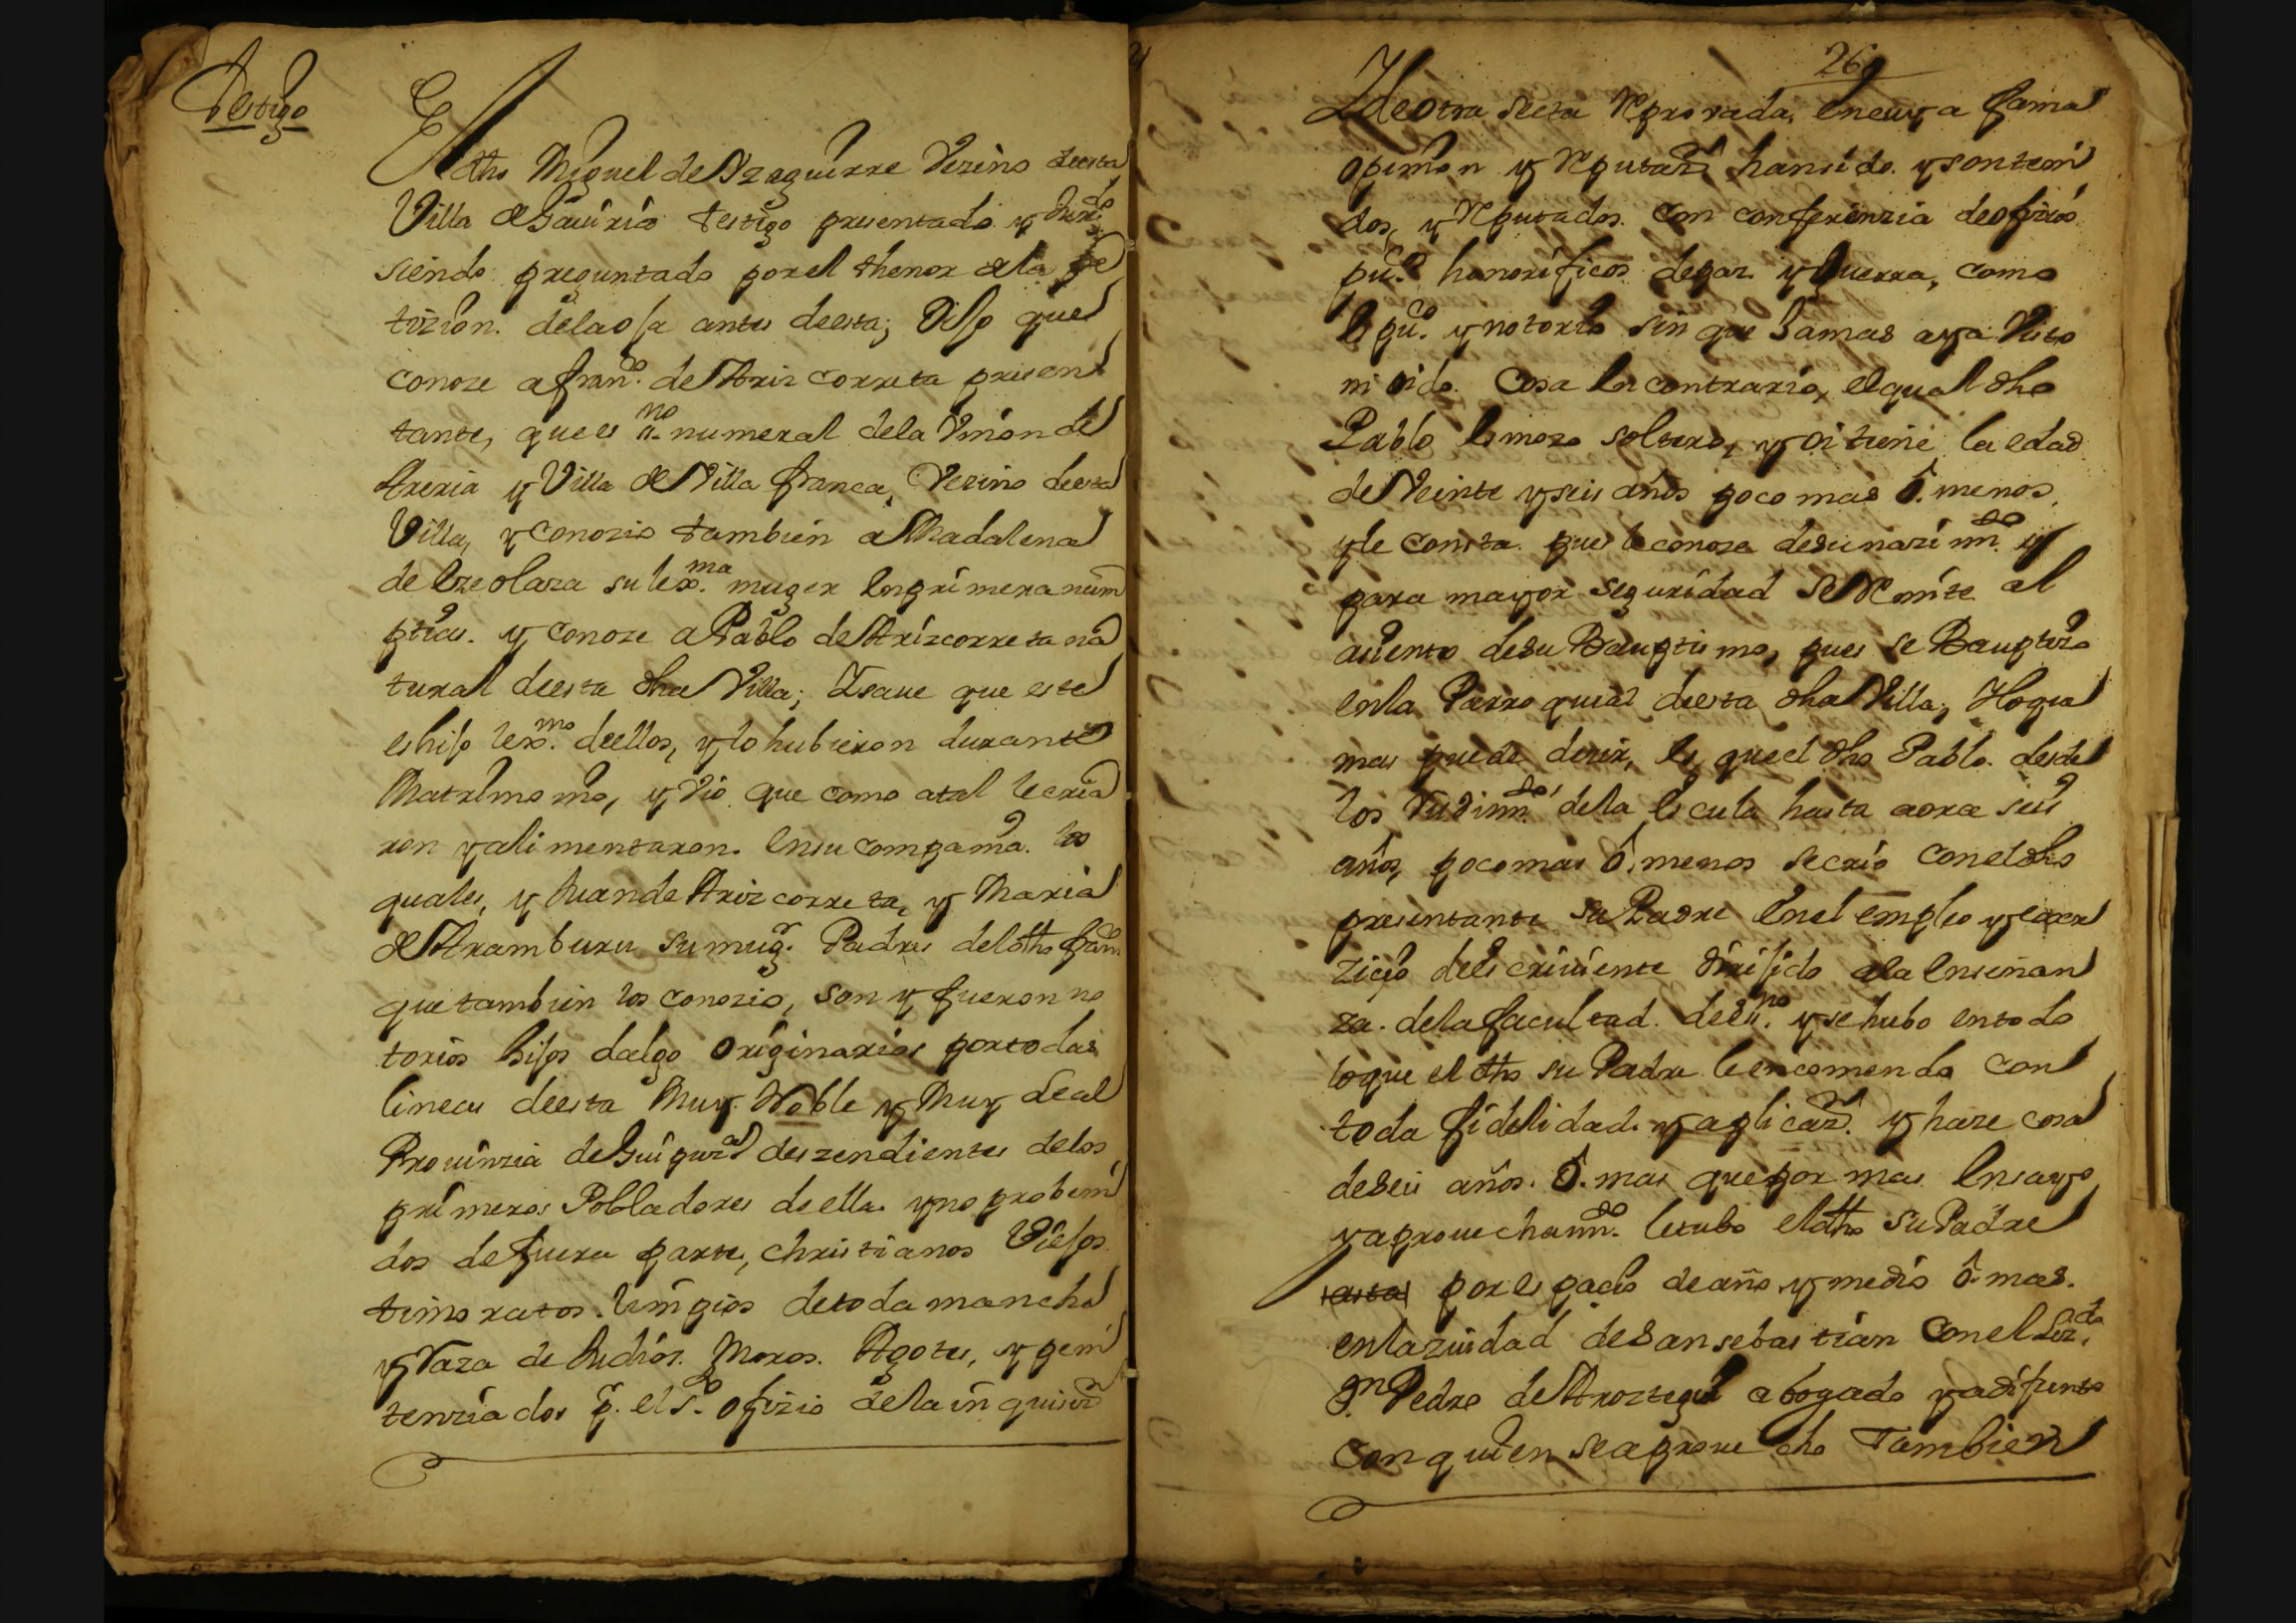 Testigo
El dho Miguel de Yzaguirre Vezino deesta
Villa de Gauiria testigo presentado y Jurdo
siendo preguntado porel thenor dela pe
tizion. delaoja antes deesta; Dijo que
conoze a frano. de Arizcorreta presen
tante, quees sno. numeral dela Vnion de
Areria y Villa de Villa franca, Vezino deesta
Villa, y conozio tambien a Madalena
de su lexma. muger en primera num
ptias. y conoze a Pablo de Arizcorreta na
tural deesta dha Villa; Isaue que este
es hijo lexmo. deellos, y lo hubieron durante
Matrimonio, y Vio que como atal le cria
ron y alimentaron. Ensu compania. los
quales, y Juande Arizcorreta, y Maria
de Aramburu sumugr. Padres deldho frano
que tambien los conozio, son y fueron no
torios hijos dalgo originarios portodas
lineas deesta Muy Noble y Muy Leal
Prouinzia de Guipuzcoa deszendientes delos
primeros Pobladores deella. y no probeni
dos defuera parte, christianos Viejos
timoratos. limpios detoda mancha
y Raza de Judios. Moros. Agotes, y peni
tenziados pr. el sto. ofizio dela inquisizn
26
Ideotra secta Reprovada, encuya fama
opinion y Reputazn han sido. y sonteni
dos, y Reputados. Con conferenzia deofizios
puos. honorificos depaz y Guerra, como
es puo. y notorio sin que Jamas aya Visto
ni oido. Cosa en contrario, elqual dho
Pablo es mozo soltero, y oi tiene la edad
de Veinte y seis años poco mas ô. menos,
y le consta. pues le conoze desunazimto. y
para mayor seguridad se Remite al
asiento desu Bauptismo, pues se Bauptizo
enla Parroquial deesta dha Villa; Yloque
mas puede dezir, es, queel dho Pablo. desde
los Rudimtos. dela escuela hasta aora seis
años, poco mas ô. menos secrio coneldho
presentante su Padre enel empleo y exer
zicio deescriuiente dirijido ala enseñan
za. delafacultad. deesno. y se hubo entodo
loque el dho su Padre le encomendo con
toda fidelidad. y aplicazn. y haze cosa
deseis años. ô. mas que por mas ensayo
y aprouechamto. letubo eldho su Padre
por espacio deaño y medio ô. mas.
enlaziudad de San sebastian Con el Lizdo.
Dn. Pedro de Aroztegui abogado ya difunto
Con quien seaprouecho Tambien